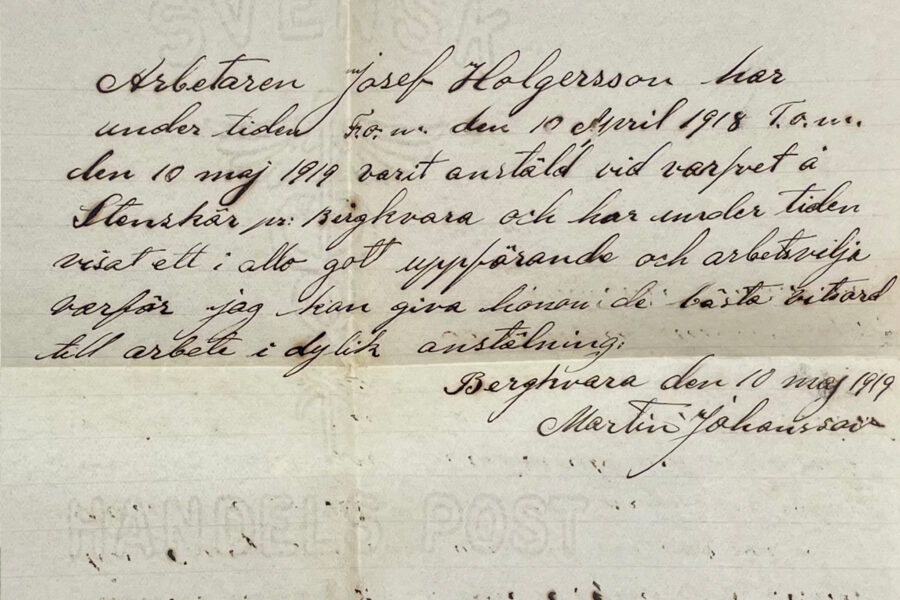 SVENSK
Arbetaren Josef Holgersson har
under tiden F.o.m. den 10 April 1918 T.o.m.
den 10 maj 1919 varit anstäld vid varfvet å
Stenskär pr: Berghvara och har under tiden
visat ett i allo gott uppförande och arbetsvilja
varför jag kan giva honom de bästa vitsord
till arbete i dylik anstälning.
Berghvara den 10 maj 1919
Martin Johansson
HANDELS POST